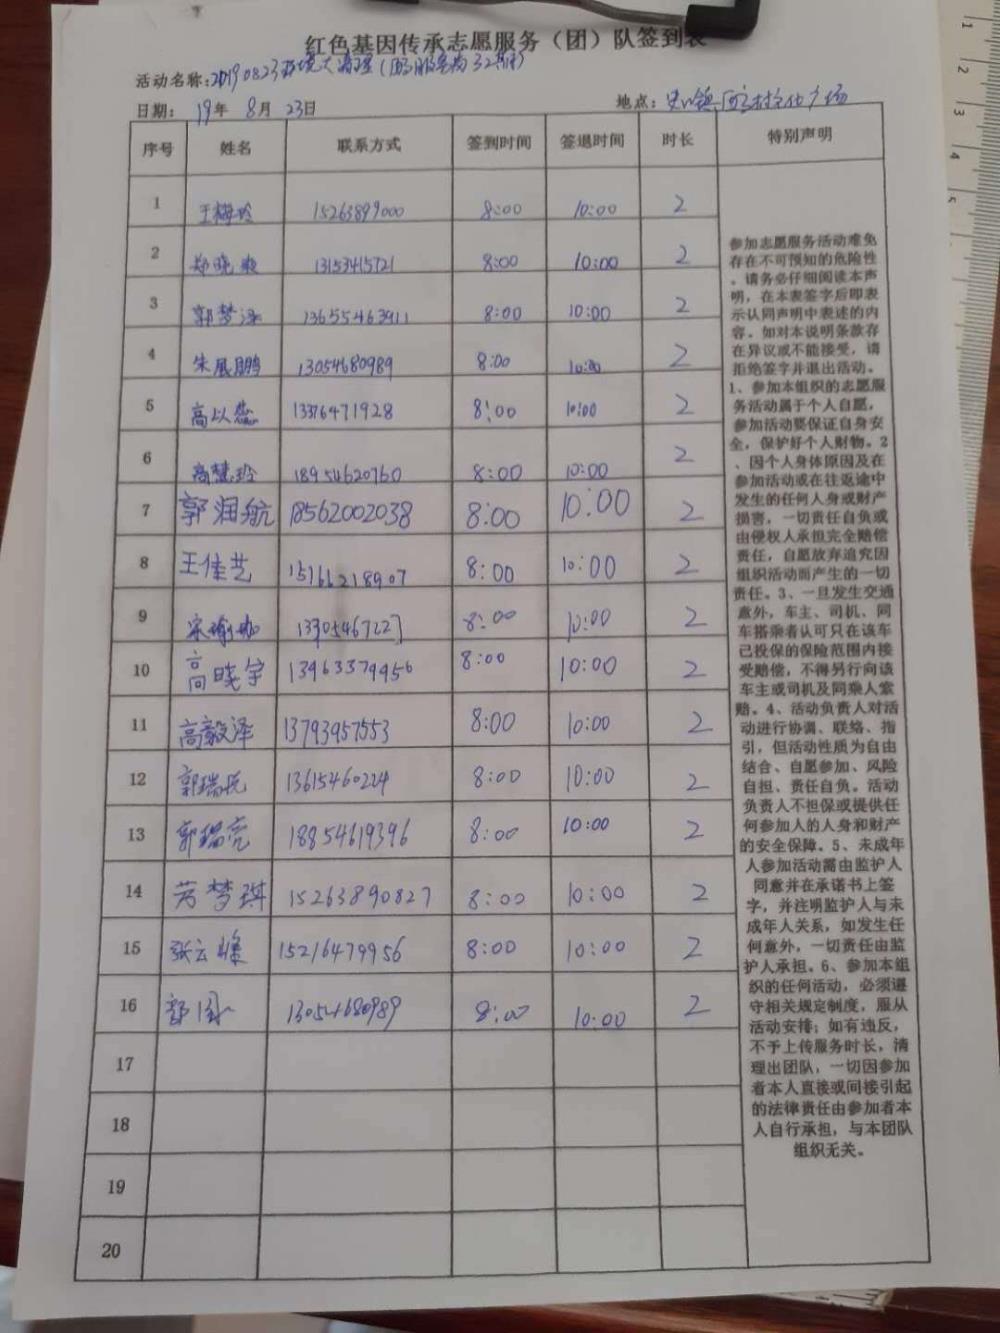 红色基因传承志愿服务（团）队签到表
活动名称:20190823环境大清理（
日期： 19年 8月 23日 地点：史口镇 广场
序号 姓名 联系方式 签到时间 签退时间 时长 特别声明
1 王梅玲 15263899000 8:00 10:00 2
2 郑晓爽 13153415721 8:00 10:00 2
3 郭梦泽 13655463911 8:00 10:00 2
4 朱展鹏 13054680989 8:00 10:00 2
5 高以蕊 13376471928 8:00 10:00 2
6 高慧玲 18954620760 8:00 10:00 2
7 郭润航 18562002038 8:00 10:00 2
8 王佳艺 15166218907 8:00 10:00 2
9 宋瑜珈 13305467227 8:00 10:00 2
10 高晓宇 13963379456 8:00 10:00 2
11 高毅泽 13793957553 8:00 10:00 2
12 郭瑞 13615460224 8:00 10:00 2
13 郭瑞亮 18854619396 8:00 10:00 2
14 梦琪 15263890827 8:00 10:00 2
15 张云 15216479956 8:00 10:00 2
16 13054680989 8:00 10:00 2
17
18
19
20
参加志愿服务活动难免
存在不可预知的危险性
，请务必仔细阅读本声
明，在本表签字后即表
示认同声明中表述的内
容。如对本说明条款存
在异议或不能接受，请
拒绝签字并退出活动。
1、参加本组织的志愿服
务活动属于个人自愿，
参加活动要保证自身安
全，保护好个人财物。2
、因个人身体原因及在
参加活动或在往返途中
发生的任何人身或财产
损害，一切责任自负或
由侵权人承担完全赔偿
责任，自愿放弃追究因
组织活动而产生的一切
责任。3、一旦发生交通
意外，车主、司机、同
车搭乘者认可只在该车
己投保的保险范围内接
受赔偿，不得另行向该
车主或司机及同乘人索
赔。4、活动负责人对活
动进行协调、联络、指
引，但活动性质为自由
结合、自愿参加、风险
自担、责任自负。活动
负责人不担保或提供任
何参加人的人身和财产
的安全保障。5、未成年
人参加活动需由监护人
同意并在承诺书上签
字，并注明监护人与未
成年人关系，如发生任
何意外，一切责任由监
护人承担。6、参加本组
织的任何活动，必须遵
守相关规定制度，服从
活动安排；如有违反，
不予上传服务时长，清
理出团队，一切因参加
者本人直接或间接引起
的法律责任由参加者本
人自行承担，与本团队
组织无关。